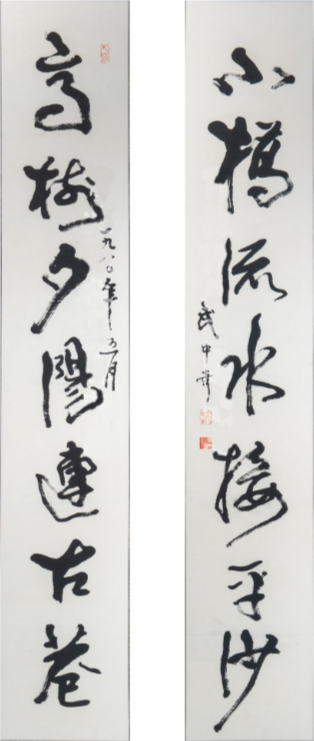 高樹夕陽連古巷
一九八〇年五月
小橋流水接平沙
武中奇